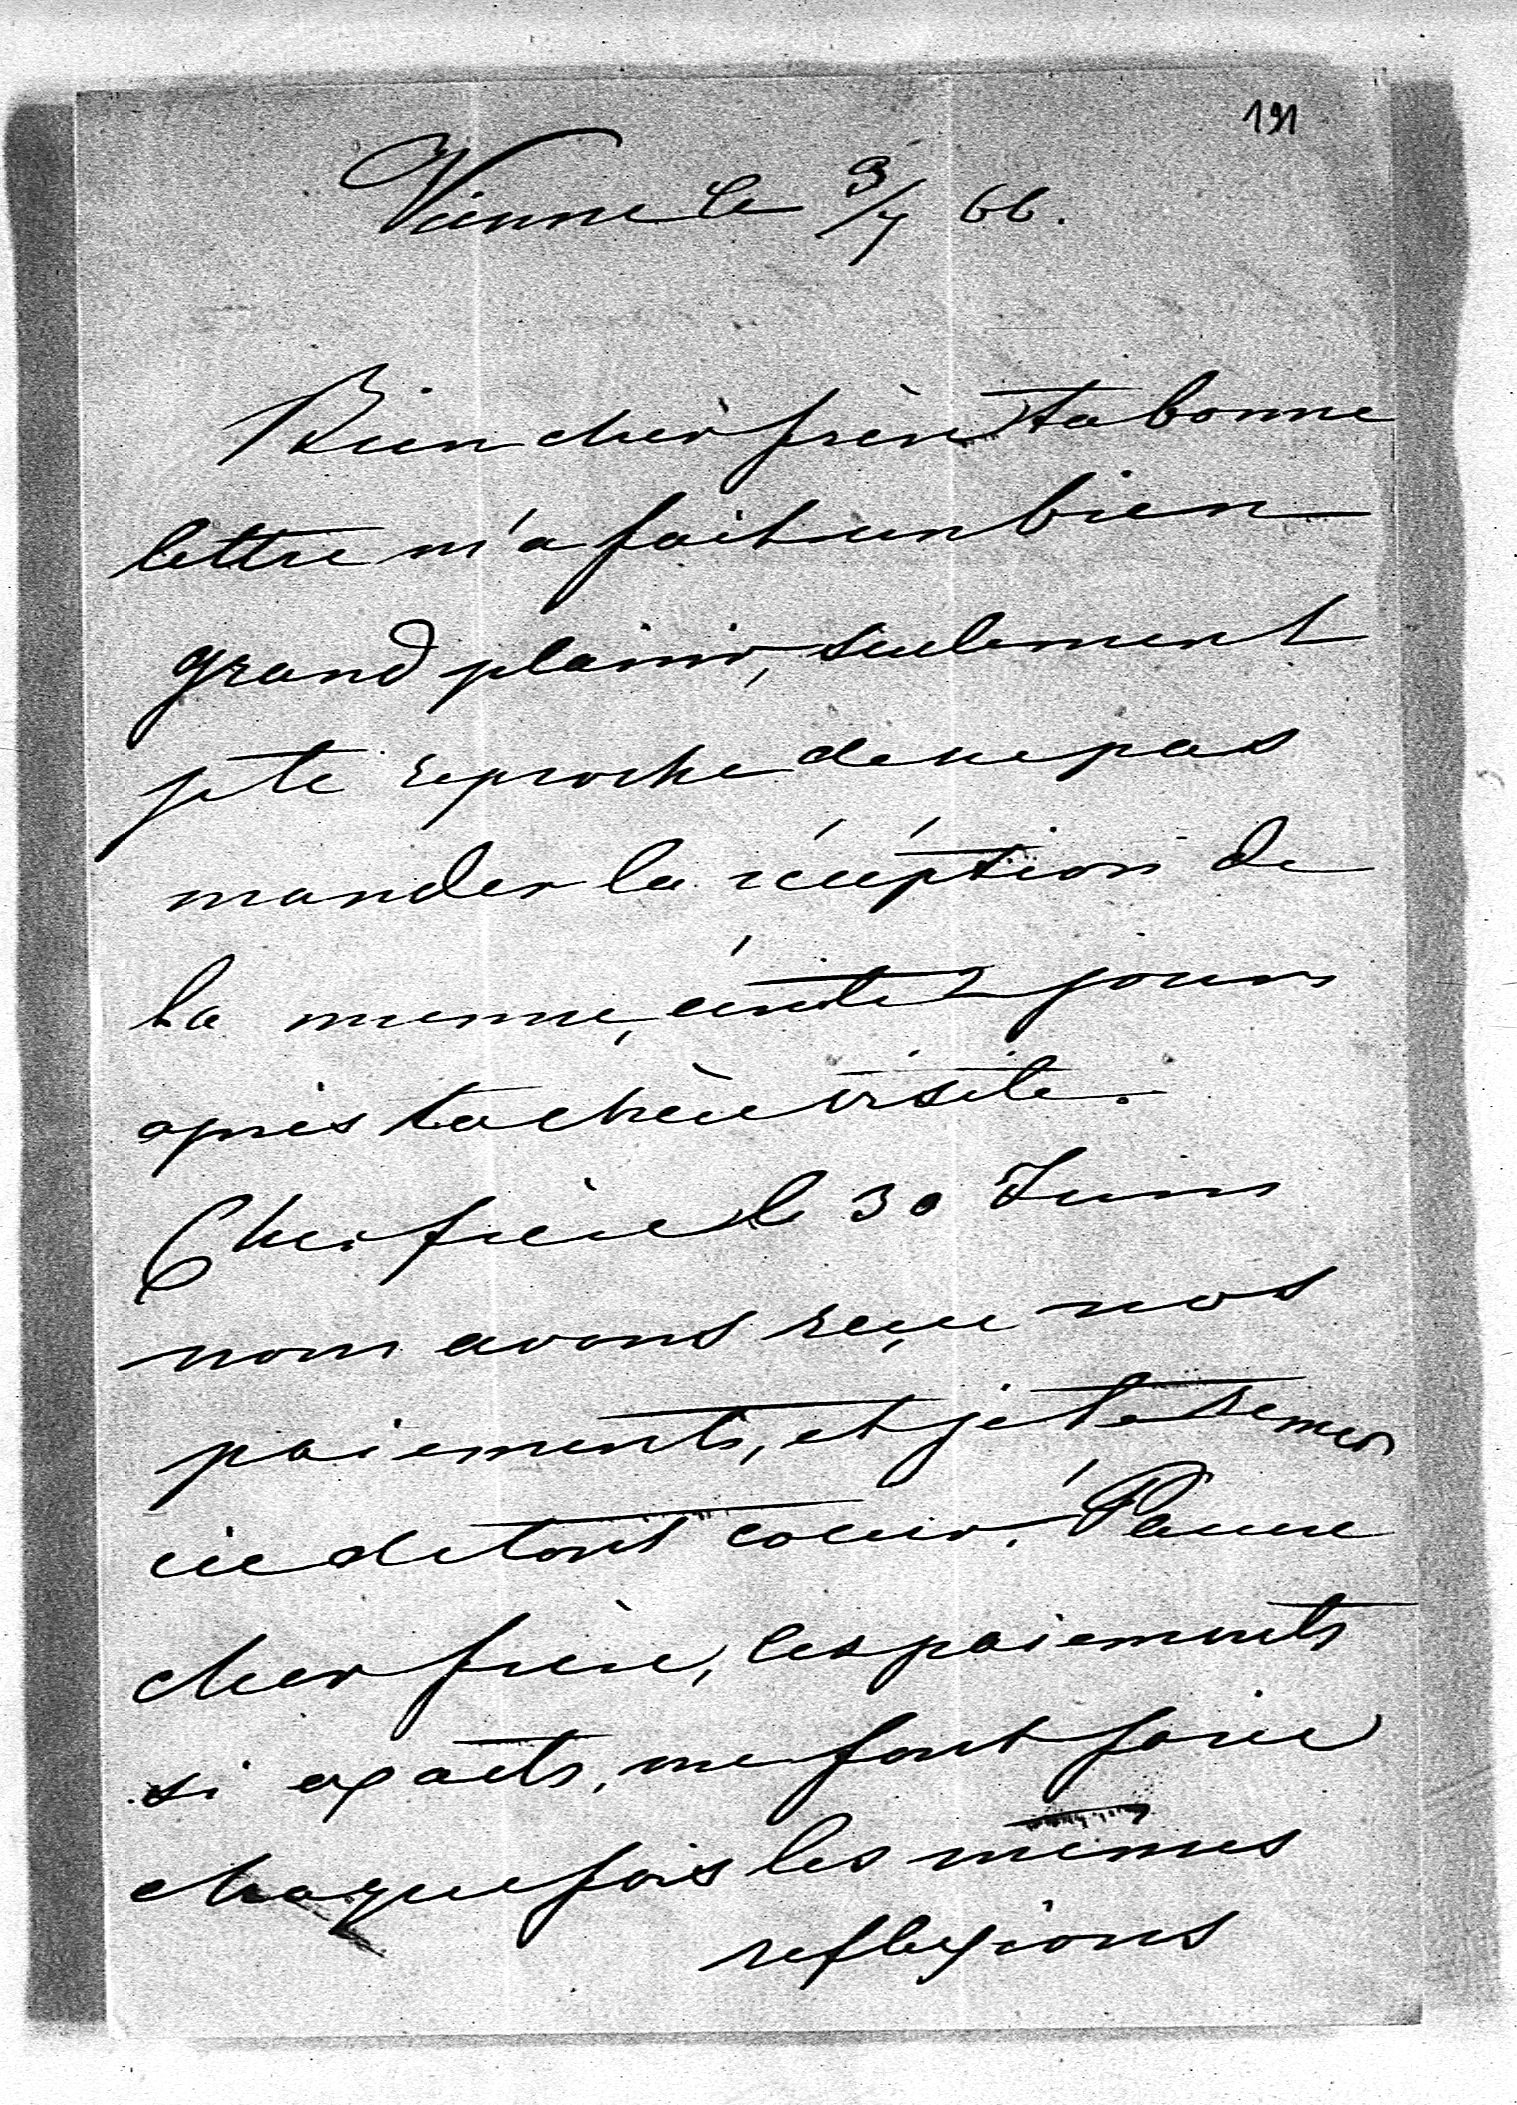 191
Vienne le 3/7 66.
Bien cher frère, ta bonne
lettre m'a fait un bien
grand plaisir, seulement
je te reproche de ne pas
mander la récéption de
la mienne, écrite 2 jours
après ta chère visite.
Cher frère le 30 Juin
nous avons reçu nos
paiements, et je te remer
cie de tout coeur! Pauvre
cher frère, les paiements
si exacts, me font faire
chaque fois les mêmes
reflexions